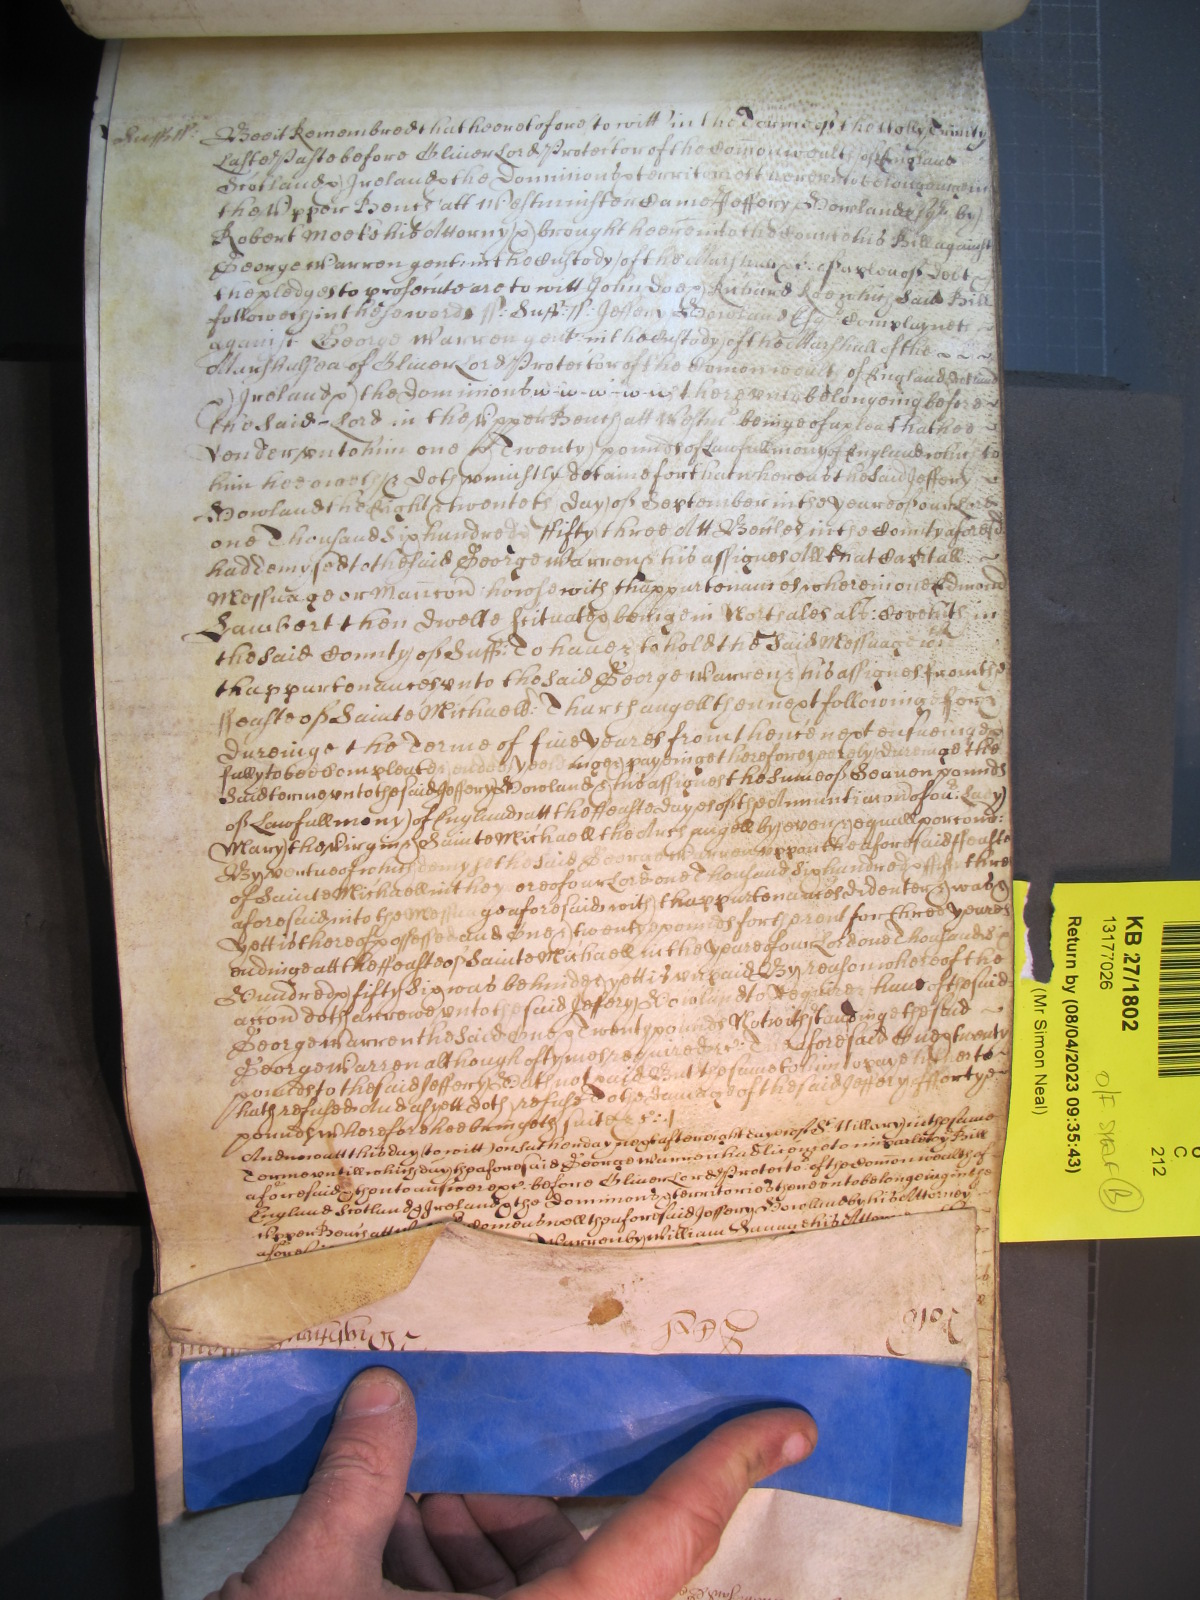 Suff ss: Bee it Remembred that heeretofore to witt in the Terme of the Holy Trinity
Last Past before Oliver Lord Protector of the Comonwealth of England
Scotland & Ireland & the Dominions & territories thereunto belongeinge in
the Upper Bench att Westminster Came Jeffery Howland Esqr by
Robert Moete his Attorny & brought heere into the Court his Bill against
George Warren gent in the Custody of the Marshall &c of a plea of Debt
the pledges to prosecute are to witt John Doe & Richard Roe which said Bill
followeth in these words ss: Suff: ss: Jeffery Howland Esqr Complaynes
against George Warren gent in the Custody of the Marshall of the
Marshalsea of Oliver Lord Protector of the Comonwealth of England Scotland
& Ireland & the Dominions thereunto belongeing before
the said Lord in the Upper Bench att Westmr beinge of a plea that hee
render unto him one & Twenty pounds of Lawfull mony of England which to
him hee oweth & doth uniustly detaine for that whereas the said Jeffery
Howland the Eight & twenteth day of September in the yeare of our Lord
one Thousand six hundred & fifty three Att in the County aforesd
had demysed to the said George Warren & his assignes All that Capitall
Messuage or Mancon howse with thappurtenances wherein one Edmond
Lambert then dwelte scituate & beinge in Northales alt: Covehith in
the said County of Suff: To have & to hold the said Messuage wth
thappurtenances unto the said George Warren & his assignes from the
ffeaste of Sainte Michaell Tharchangell then next following for &
dureinge the Terme of five yeares from thence next ensueinge &
fully to bee compleate & ended yeeldinge & payeinge therefore yeerely dureinge the
said terme unto the said Jeffery Howland & his assignes the sume of Seaven pounds
of Lawfull mony of England att the ffeaste dayes of the Annunciacon of our Lady
Mary the Virgin & Sainte Michaell the Archangell by even & equall porcons:
By vertue of which demyse the said George Warren uppon the aforesaid ffeaste
of Sainte Michaell in the yere of our Lord one Thousand six hundred & fifty three
aforesaid into the Messuage aforesaid with thappurtenances did enter & was &
yett is thereof possessed and one & twenty pounds for the rent for three yeares
endinge att the ffeaste of Sainte Michaell in the yeare of our Lord one Thousand six
Hundred & fifty six was behinde & yett is unpaid By reason whereof the
accon doth accrewe unto the said Jeffery Howland to require & have of the said
George Warren the said one & Twenty pounds Notwithstandinge the said
George Warren allthough oftymes required &c The aforesaid one & twenty
pounds to the said Jeffery hath not paid But the same to him to paye hitherto
hath refused and as yett doth refuse To the damage of the said Jeffery ffortye
pounds wherefore hee bringeth suite &c
And now att this day to witt on Munday next after eight dayes of St Hillary in the same
Terme untill which day the aforesaid George Warren had licence to imparle to the Bill
aforesaid & then to answer &c before Oliver Lord Protector of the Comonwealth of
England Scotland & Ireland & the Dominions & territories thereunto belongeing in the
Upper Bench att comes as well the aforesaid Jeffery Howland by his Attorney
aforesaid Warren by William Savage his Attorney
KB 27/1802
13177026
Return by (08/04/2023 09:35:43)
(Mr Simon Neal)
O/F Staff (B)
C
212